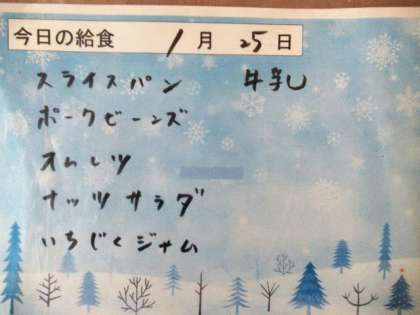 今日の給食 1月25日
スライスパン 牛乳
ポークビーンズ
オムレツ
ナッツサラダ
いちじくジャム